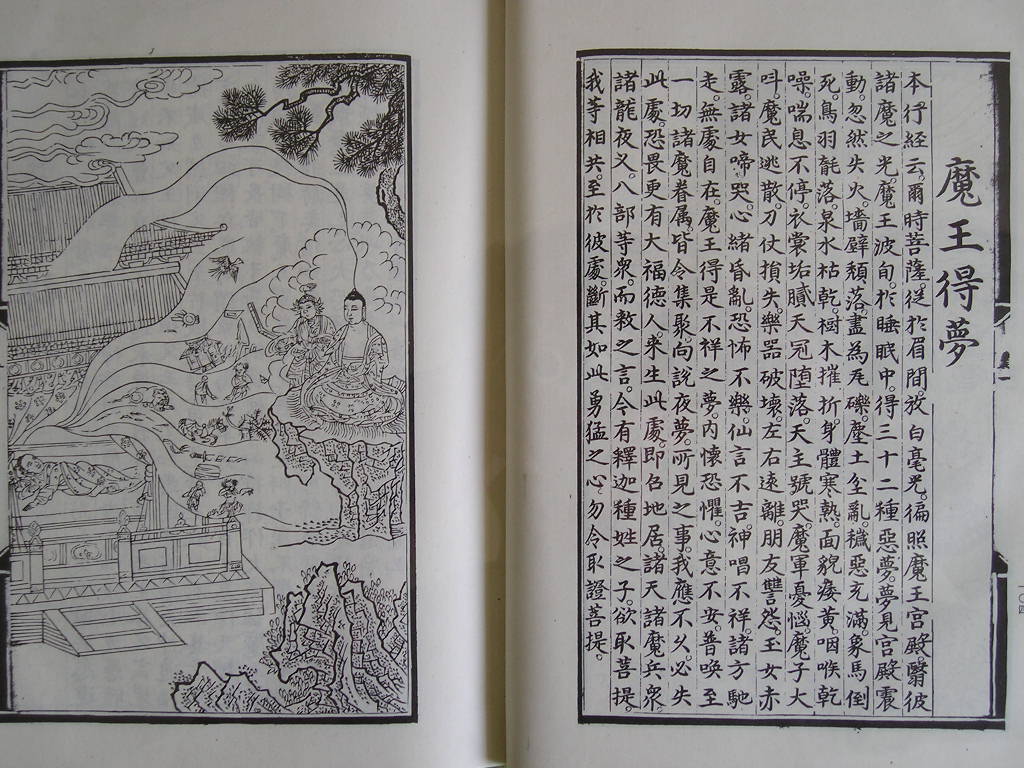 魔王得夢
本行經云。爾時菩薩。從於眉間。放白毫光。徧照魔王宮殿翳彼
諸魔之光。魔王波旬。於睡眠中。得三十二種惡夢。夢見宮殿震
動。忽然失火。墻壁頹落。畫為瓦礫。塵土坌亂。穢惡充滿。象馬倒
死。鳥羽毻落。泉水枯乾。樹木摧折。身體寒熱。面貌痿黃。咽喉乾
噪。喘息不停。衣裳垢膩。天冠墮落。天主號哭。魔軍憂惱。魔子大
叫。魔民逃散。刀仗損失。樂器破壞。左右遠離。朋友讐怨。王女赤
露。諸女啼哭。心緒昏亂。恐怖不樂。仙言不吉。神唱不祥。諸方馳
走。無處自在。魔王得是不祥之夢。內懷恐懼。心意不安。普喚至
一切諸魔眷屬。皆令集聚。向說夜夢。所見之事。我應不久。必失
此處。恐畏更有大福德人。來生此處。即召地居。諸天諸魔兵衆。
諸龍夜叉。八部等衆。而教之言。今有釋迦種姓之子。欲取菩提
我等相共至於彼處。斷其如此勇猛之心。勿令取證菩提。